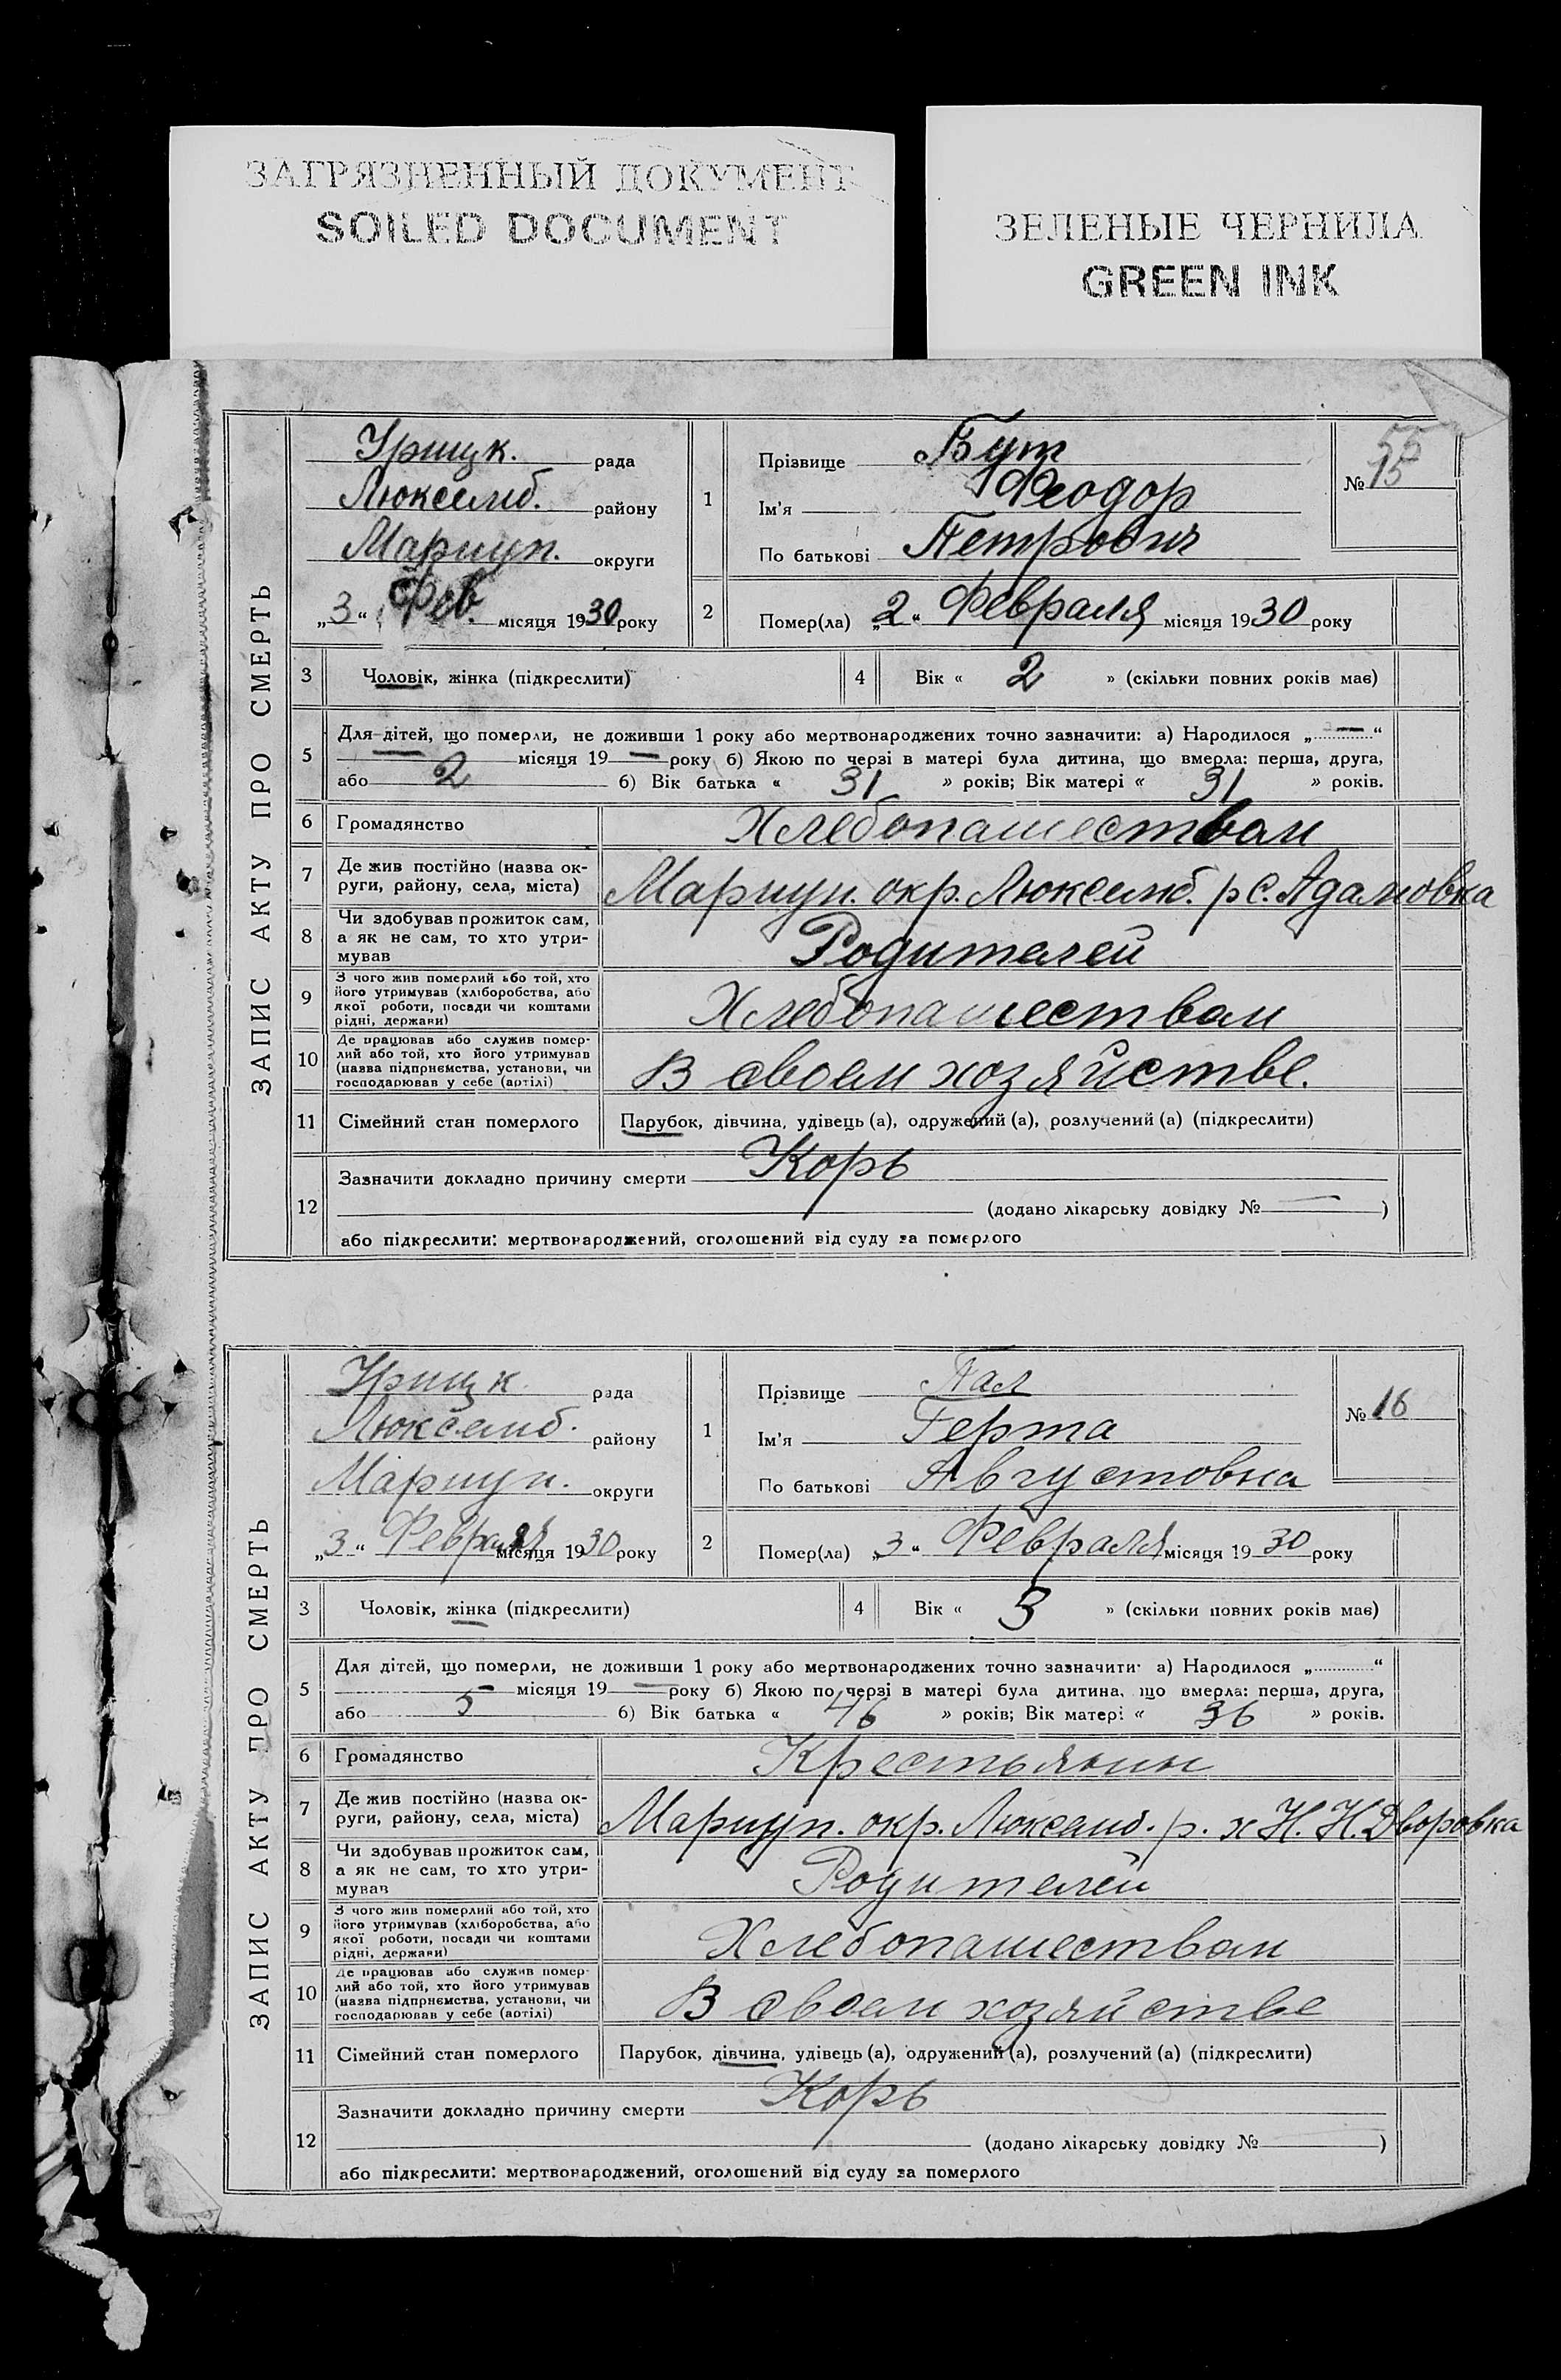 ЗАГРЯЗНЕННЫЙ ДОКУМЕНТ
SOILED DOCUMENT
ЗЕЛЕНЫЕ ЧЕРНИЛА
GREEN INK
ЗАПИС АКТУ ПРО СМЕРТЬ
Урицк. рада
Люксемб. району
Мариуп. округи
„3“ Фев. місяця 1930 року
1 Прізвище Бут
Ім'я Феодор
По батькові Петрович
55
№ 15
2 Помер(ла) „2“ Февраля місяця 1930 року
3 Чоловік, жінка (підкреслити)
4 Вік « 2 » (скільки повних років має)
5 Для дітей, що померли, не доживши 1 року або мертвонароджених точно зазначити: а) Народилося „—“
— місяця 19— року б) Якою по черзі в матері була дитина, що вмерла: перша, друга,
або 2 б) Вік батька « 31 » років; Вік матері « 31 » років.
6 Громадянство Хлебопашеством
7 Де жив постійно (назва ок-
руги, району, села, міста) Мариуп. окр. Люксемб. р с. Адамовка
8 Чи здобував прожиток сам,
а як не сам, то хто утри-
мував Родителей
9 З чого жив померлий або той, хто
його утримував (хліборобства, або
якої роботи, посади чи коштами
рідні, держави) Хлебопашеством
10 Де працював або служив помер-
лий або той, хто його утримував
(назва підприємства, установи, чи
господарював у себе (артілі) В своем хозяйстве.
11 Сімейний стан померлого Парубок, дівчина, удівець (а), одружений (а), розлучений (а) (підкреслити)
12 Зазначити докладно причину смерти Корь
(додано лікарську довідку № — )
або підкреслити: мертвонароджений, оголошений від суду за померлого
ЗАПИС АКТУ ПРО СМЕРТЬ
Урицк рада
Люксемб. району
Мариуп. округи
„3“ Февраля місяця 1930 року
1 Прізвище Пал
Ім'я Герта
По батькові Августовна
№ 16
2 Помер(ла) „3“ Февраля місяця 1930 року
3 Чоловік, жінка (підкреслити)
4 Вік « 3 » (скільки повних років має)
5 Для дітей, що померли, не доживши 1 року або мертвонароджених точно зазначити: а) Народилося „ “
місяця 19— року б) Якою по черзі в матері була дитина, що вмерла: перша, друга,
або 5 б) Вік батька « 46 » років; Вік матері « 36 » років.
6 Громадянство Крестьянин
7 Де жив постійно (назва ок-
руги, району, села, міста) Мариуп. окр. Люксемб. р. х Н. Н. Дворовка
8 Чи здобував прожиток сам,
а як не сам, то хто утри-
мував Родителей
9 З чого жив померлий або той, хто
його утримував (хліборобства, або
якої роботи, посади чи коштами
рідні, держави) Хлебопашеством
10 Де працював або служив помер-
лий або той, хто його утримував
(назва підприємства, установи, чи
господарював у себе (артілі) В своем хозяйстве
11 Сімейний стан померлого Парубок, дівчина, удівець (а), одружений (а), розлучений (а) (підкреслити)
12 Зазначити докладно причину смерти Корь
(додано лікарську довідку № )
або підкреслити: мертвонароджений, оголошений від суду за померлого